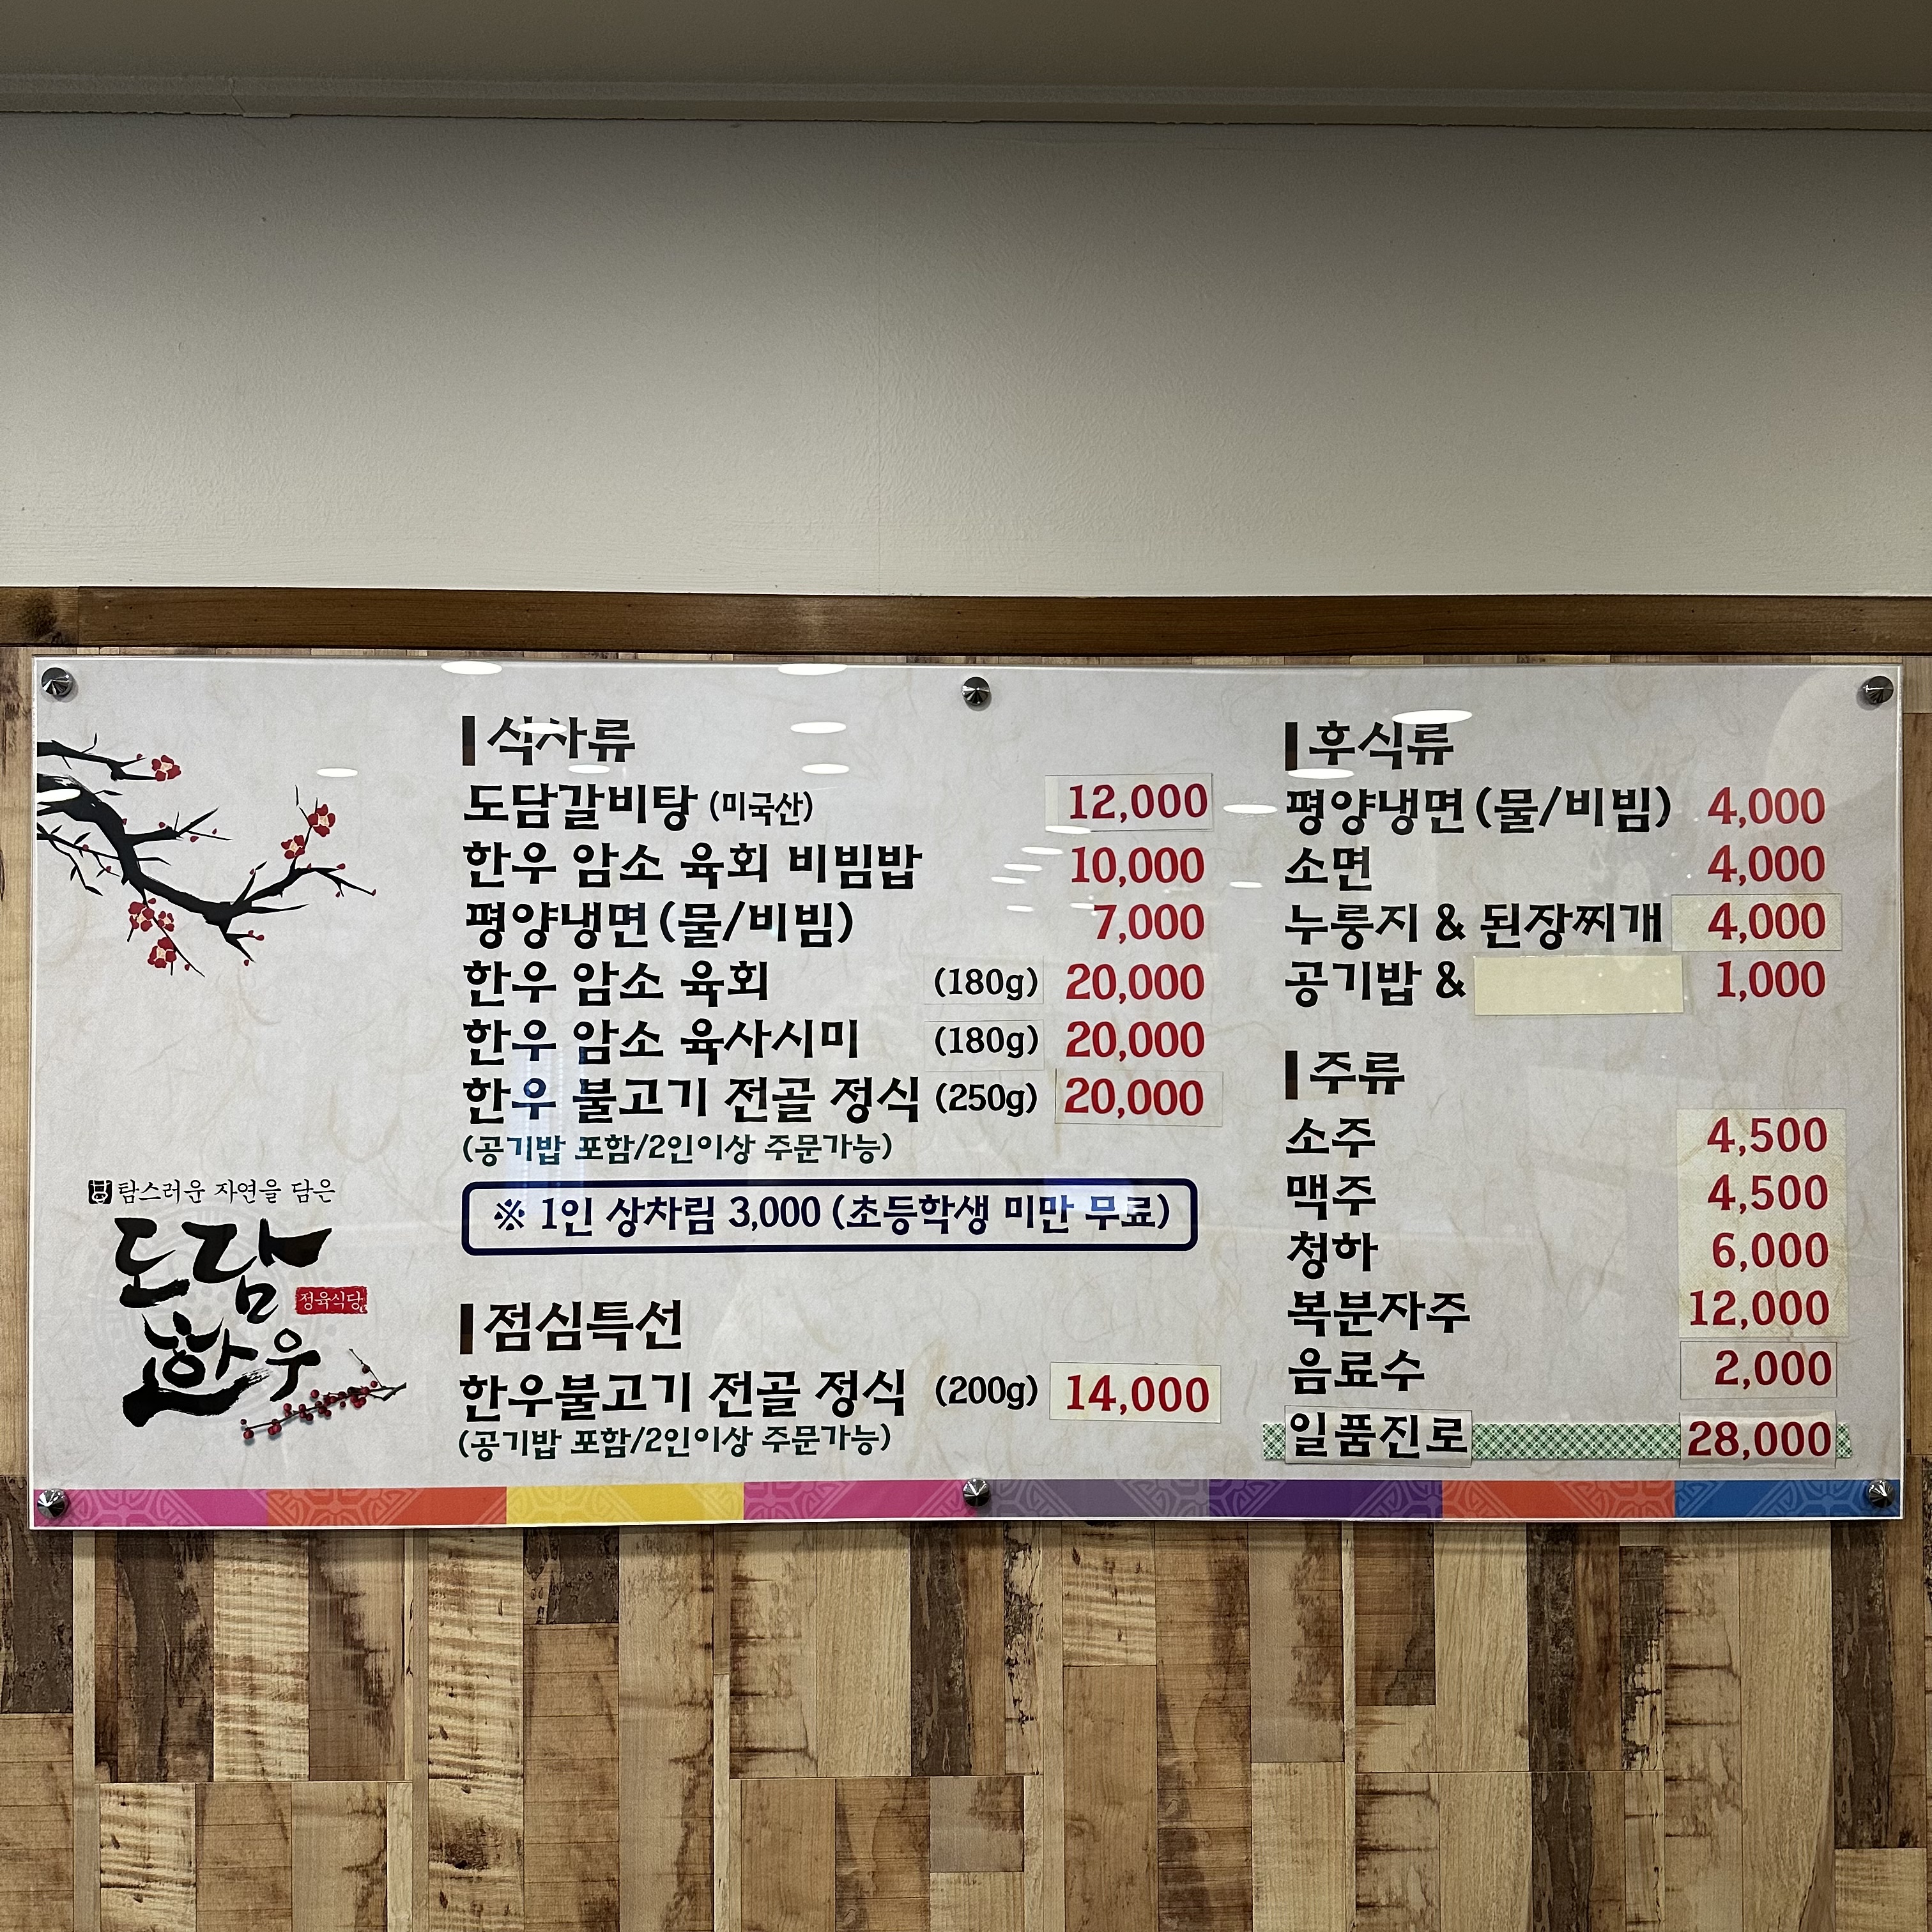 탐스러운 자연을 담은
도담
한우
정육식당
식사류
도담갈비탕 (미국산) 12,000
한우 암소 육회 비빔밥 10,000
평양냉면(물/비빔) 7,000
한우 암소 육회 (180g) 20,000
한우 암소 육사시미 (180g) 20,000
한우 불고기 전골 정식 (250g) 20,000
(공기밥 포함/2인이상 주문가능)
※ 1인 상차림 3,000 (초등학생 미만 무료)
점심특선
한우불고기 전골 정식 (200g) 14,000
(공기밥 포함/2인이상 주문가능)
후식류
평양냉면(물/비빔) 4,000
소면 4,000
누룽지 & 된장찌개 4,000
공기밥 & 1,000
주류
소주 4,500
맥주 4,500
청하 6,000
복분자주 12,000
음료수 2,000
일품진로 28,000